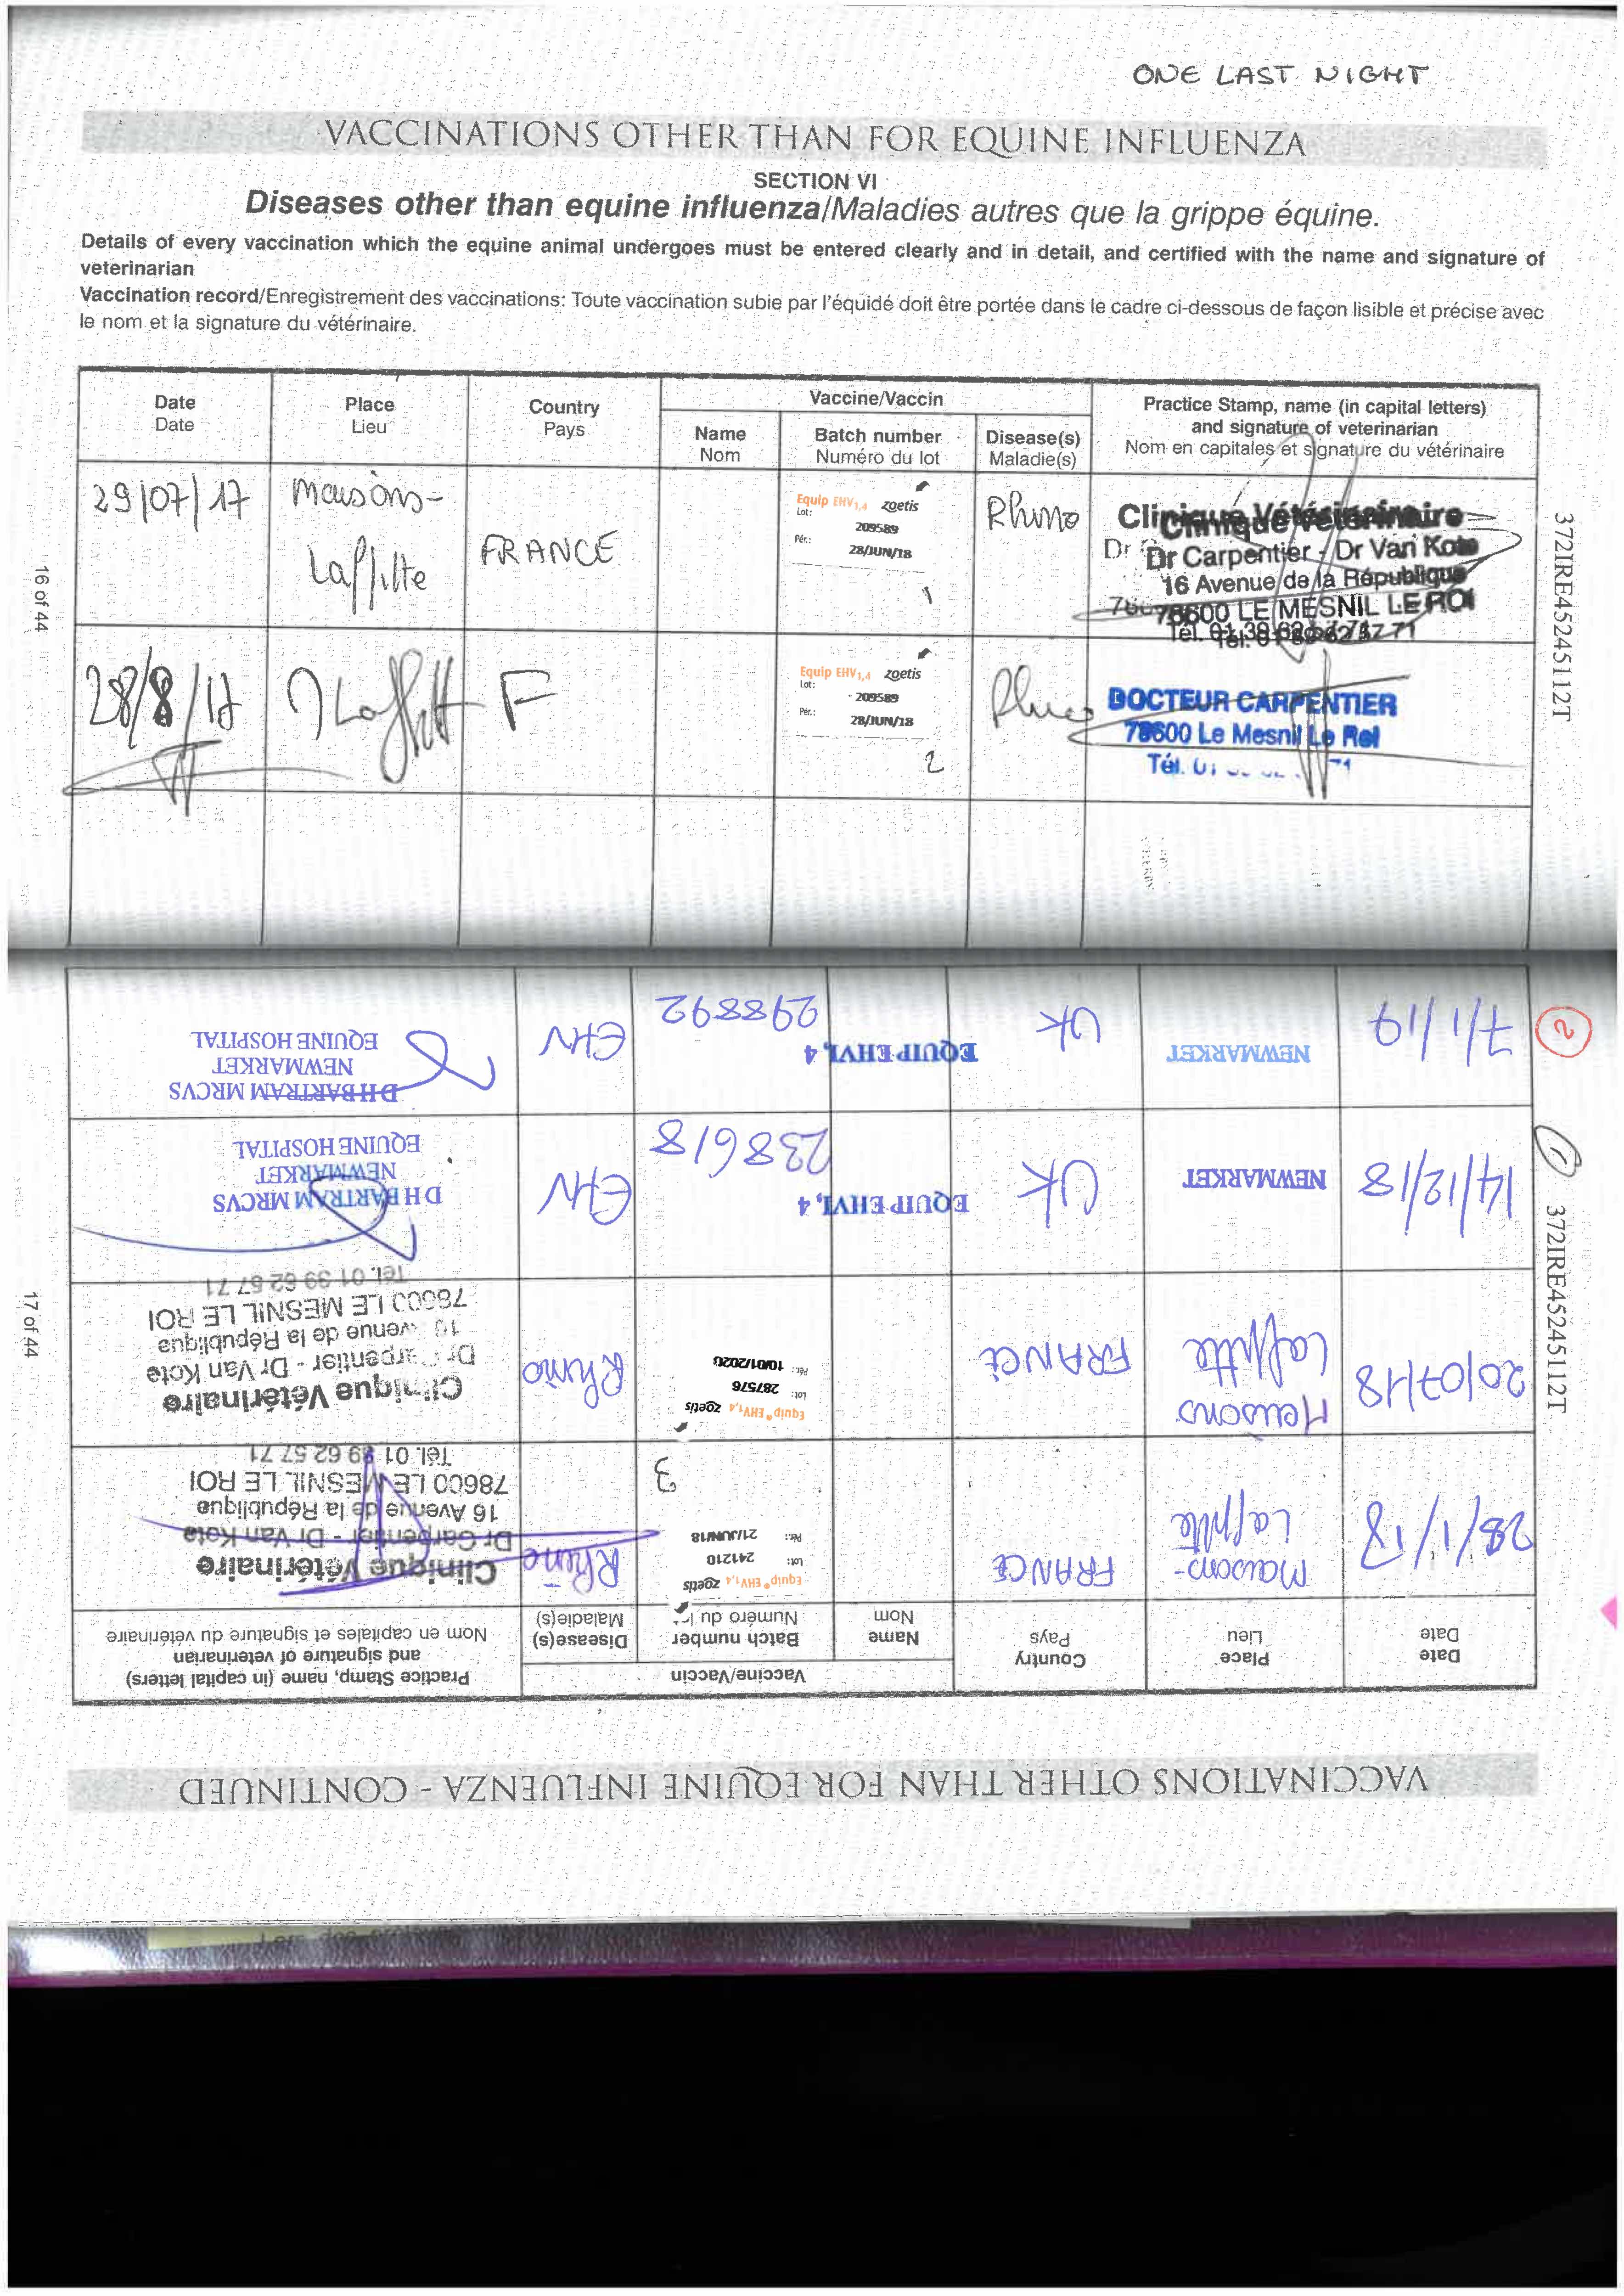 ONE LAST NIGHT
VACCINATIONS OTHER THAN FOR EQUINE INFLUENZA
SECTION VI
Diseases other than equine influenza/Maladies autres que la grippe équine.
Details of every vaccination which the equine animal undergoes must be entered clearly and in detail, and certified with the name and signature of
veterinarian
Vaccination record/Enregistrement des vaccinations: Toute vaccination subie par l'équidé doit être portée dans le cadre ci-dessous de façon lisible et précise avec
le nom et la signature du vétérinaire.
Date
Date
Place
Lieu
Country
Pays
Vaccine/Vaccin
Name
Nom
Batch number
Numéro du lot
Disease(s)
Maladie(s)
Practice Stamp, name (in capital letters)
and signature of veterinarian
Nom en capitales et signature du vétérinaire
29/07/17
Maisons-
Laffitte
FRANCE
Equip EHV1,4 zoetis
Lot:
209589
Pér.:
28/JUN/18
1
Rhino
Clinique Vétérinaire
Dr Carpentier - Dr Van Kote
16 Avenue de la République
78600 LE MESNIL LE ROI
Tél. 01 39 62 57 71
28/8/17
F
Equip EHV1,4 zoetis
Lot:
209589
Pér.:
28/JUN/18
2
Rhino
DOCTEUR CARPENTIER
78600 Le Mesnil Le Roi
Tél. 01
16 of 44
372IRE45245112T
VACCINATIONS OTHER THAN FOR EQUINE INFLUENZA - CONTINUED
Date
Date
Place
Lieu
Country
Pays
Vaccine/Vaccin
Name
Nom
Batch number
Numéro du
Disease(s)
Maladie(s)
Practice Stamp, name (in capital letters)
and signature of veterinarian
Nom en capitales et signature du vétérinaire
28/1/18
Maisons-
Laffitte
FRANCE
Equip® EHV1,4 zoetis
Lot: 241210
Pér.: 21/JUN/18
3
Rhino
Clinique Vétérinaire
Dr Carpentier - Dr Van Kote
16 Avenue de la République
78600 LE MESNIL LE ROI
Tél. 01 39 62 57 71
20/07/18
Maisons
Laffitte
FRANCE
Equip® EHV1,4 zoetis
Lot: 287576
Pér.: 10/01/2020
Rhino
Clinique Vétérinaire
Dr Carpentier - Dr Van Kote
16 Avenue de la République
78600 LE MESNIL LE ROI
Tél. 01 39 62 57 71
1
14/12/18
NEWMARKET
UK
EQUIP EHV1, 4
238618
EHV
D H BARTRAM MRCVS
NEWMARKET
EQUINE HOSPITAL
2
7/1/19
NEWMARKET
UK
EQUIP EHV1, 4
298892
EHV
D H BARTRAM MRCVS
NEWMARKET
EQUINE HOSPITAL
17 of 44
372IRE45245112T